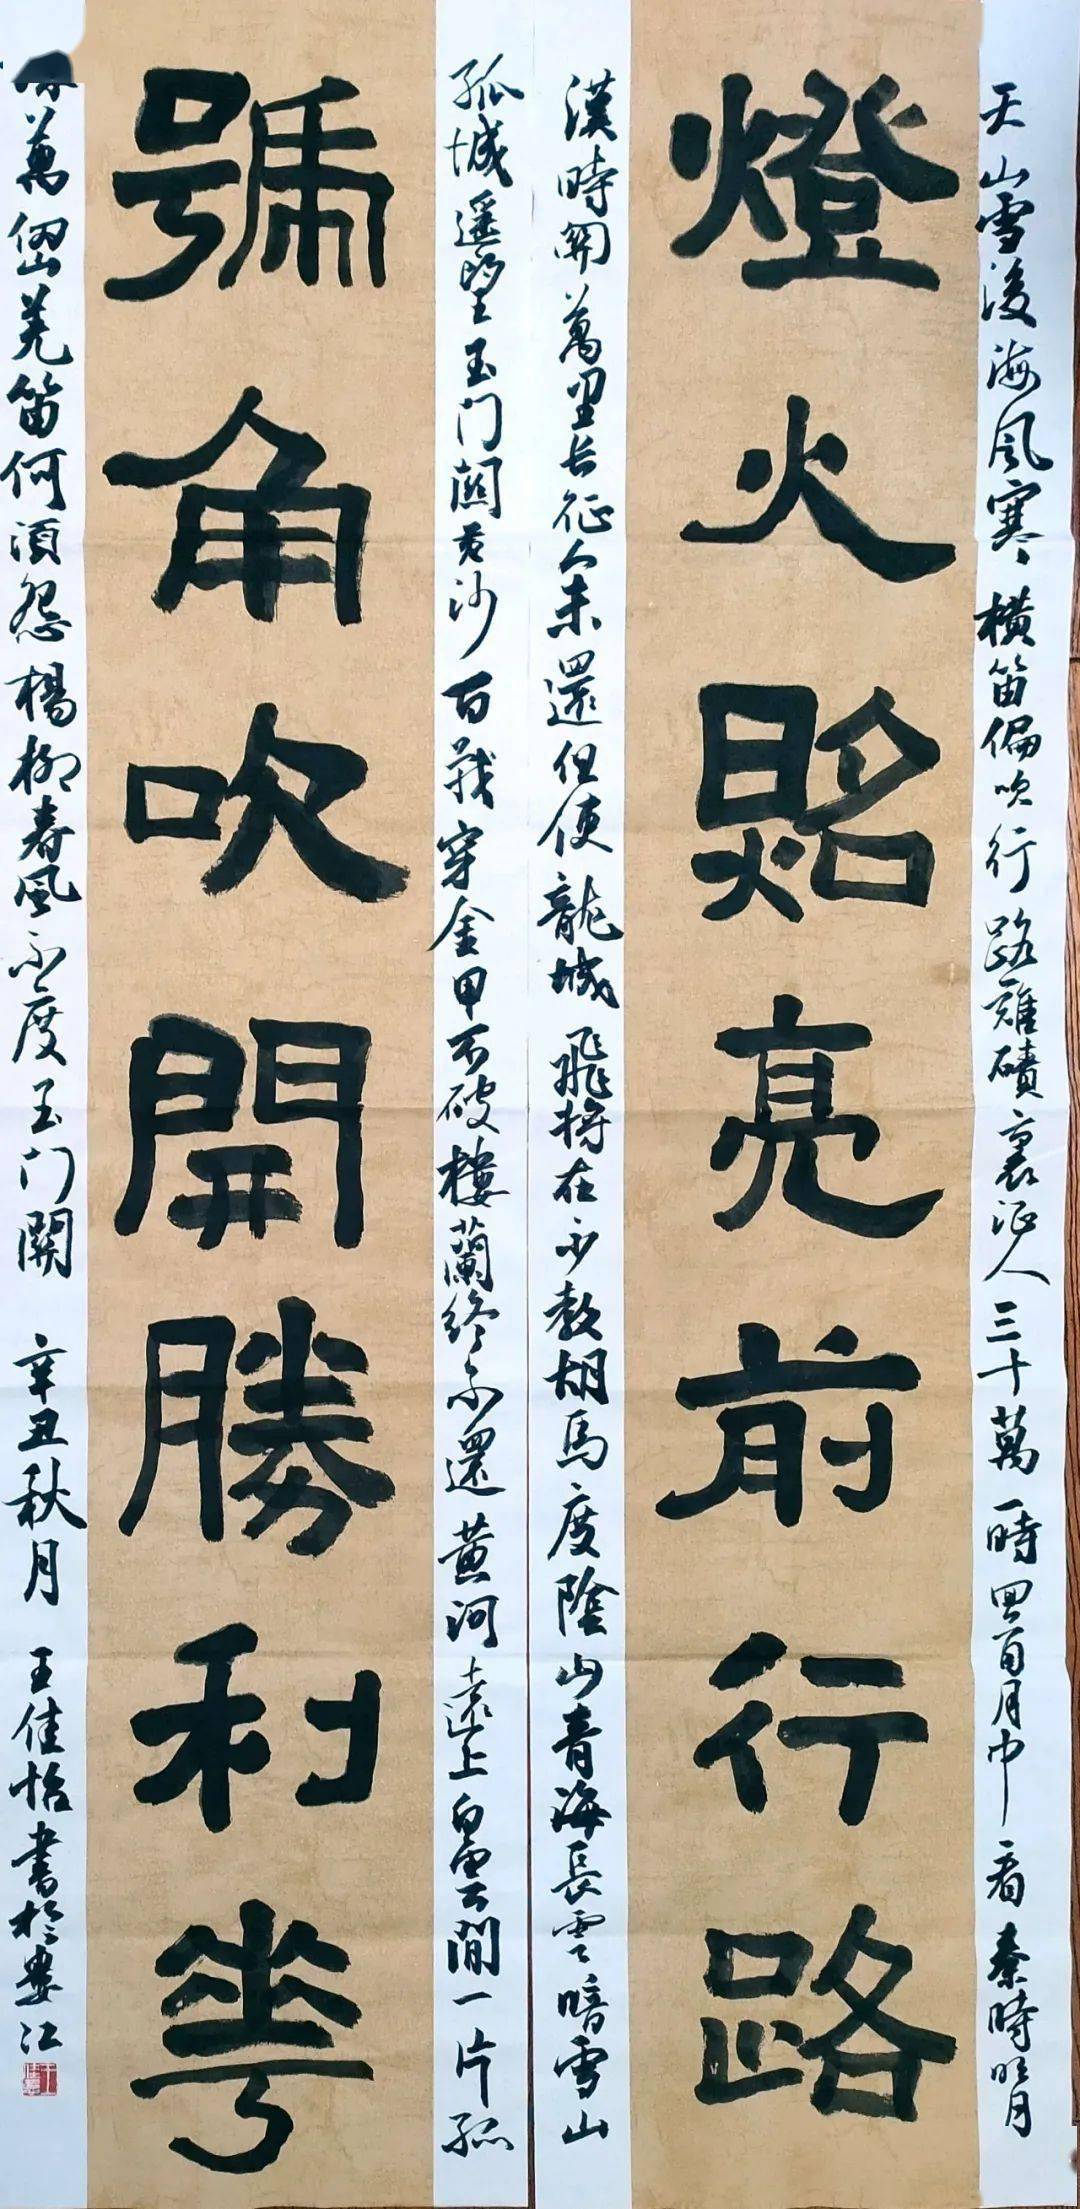 天山雪後海風寒橫笛偏吹行路難磧裏征人三十萬一時回首月中看秦時明月
燈火照亮前行路
漢時關萬里长征人未還但使龍城飛將在不教胡馬度陰山青海長雲暗雪山
孤城遥望玉门關黄沙百戰穿金甲不破樓蘭終不還黄河遠上白雲間一片孤
號角吹開勝利華
萬仞山羌笛何須怨楊柳春風不度玉门關 辛丑秋月 王佳怡書於婁江